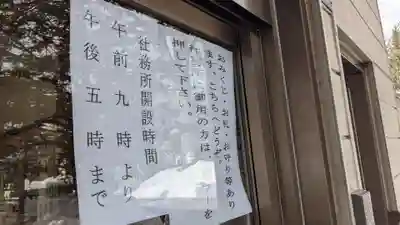 おみくじ・お札・お守り等あり
ます。こちらへどうぞ。
御用の方は、
を
押して下さい。
社務所開設時間
午前九時より
午後五時まで